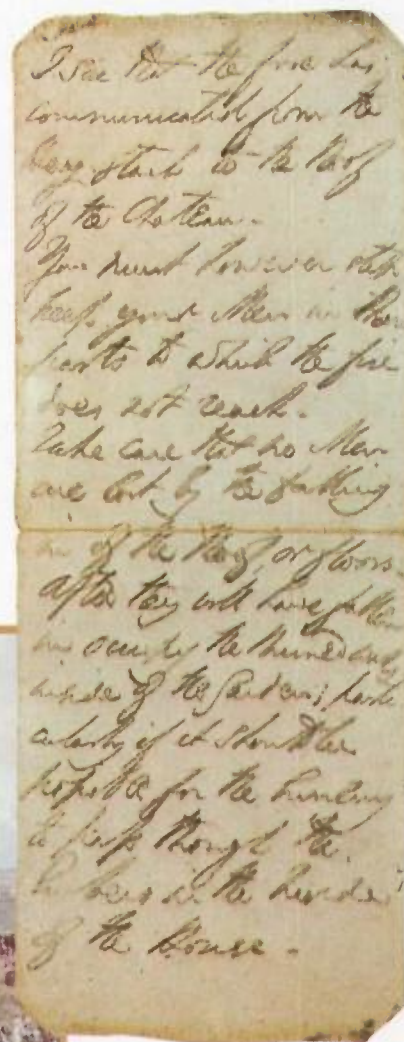 I see that the fire has
communicated from the
hay stack to the Roof
of the Chateau.
You must however still
keep your Men in those
parts to which the fire
does not reach.
Take care that no Men
are lost by the falling
in of the Roof, or floors.
After they will have fallen
in occupy the Ruined walls
inside of the Garden; parti
cularly if it should be
possible for the Enemy
to pass through the
Embers in the Inside
of the House.